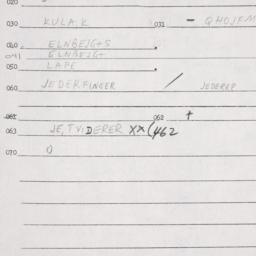 020
030 KULAK 031 - QHOJEM
040 ELNBEJGTS .
041 ELNBEJGT
050 LAPE .
060 JEDERFINGER / JEDEREP
062 062 +
063 JE,TVIDERER XX (462
070 0